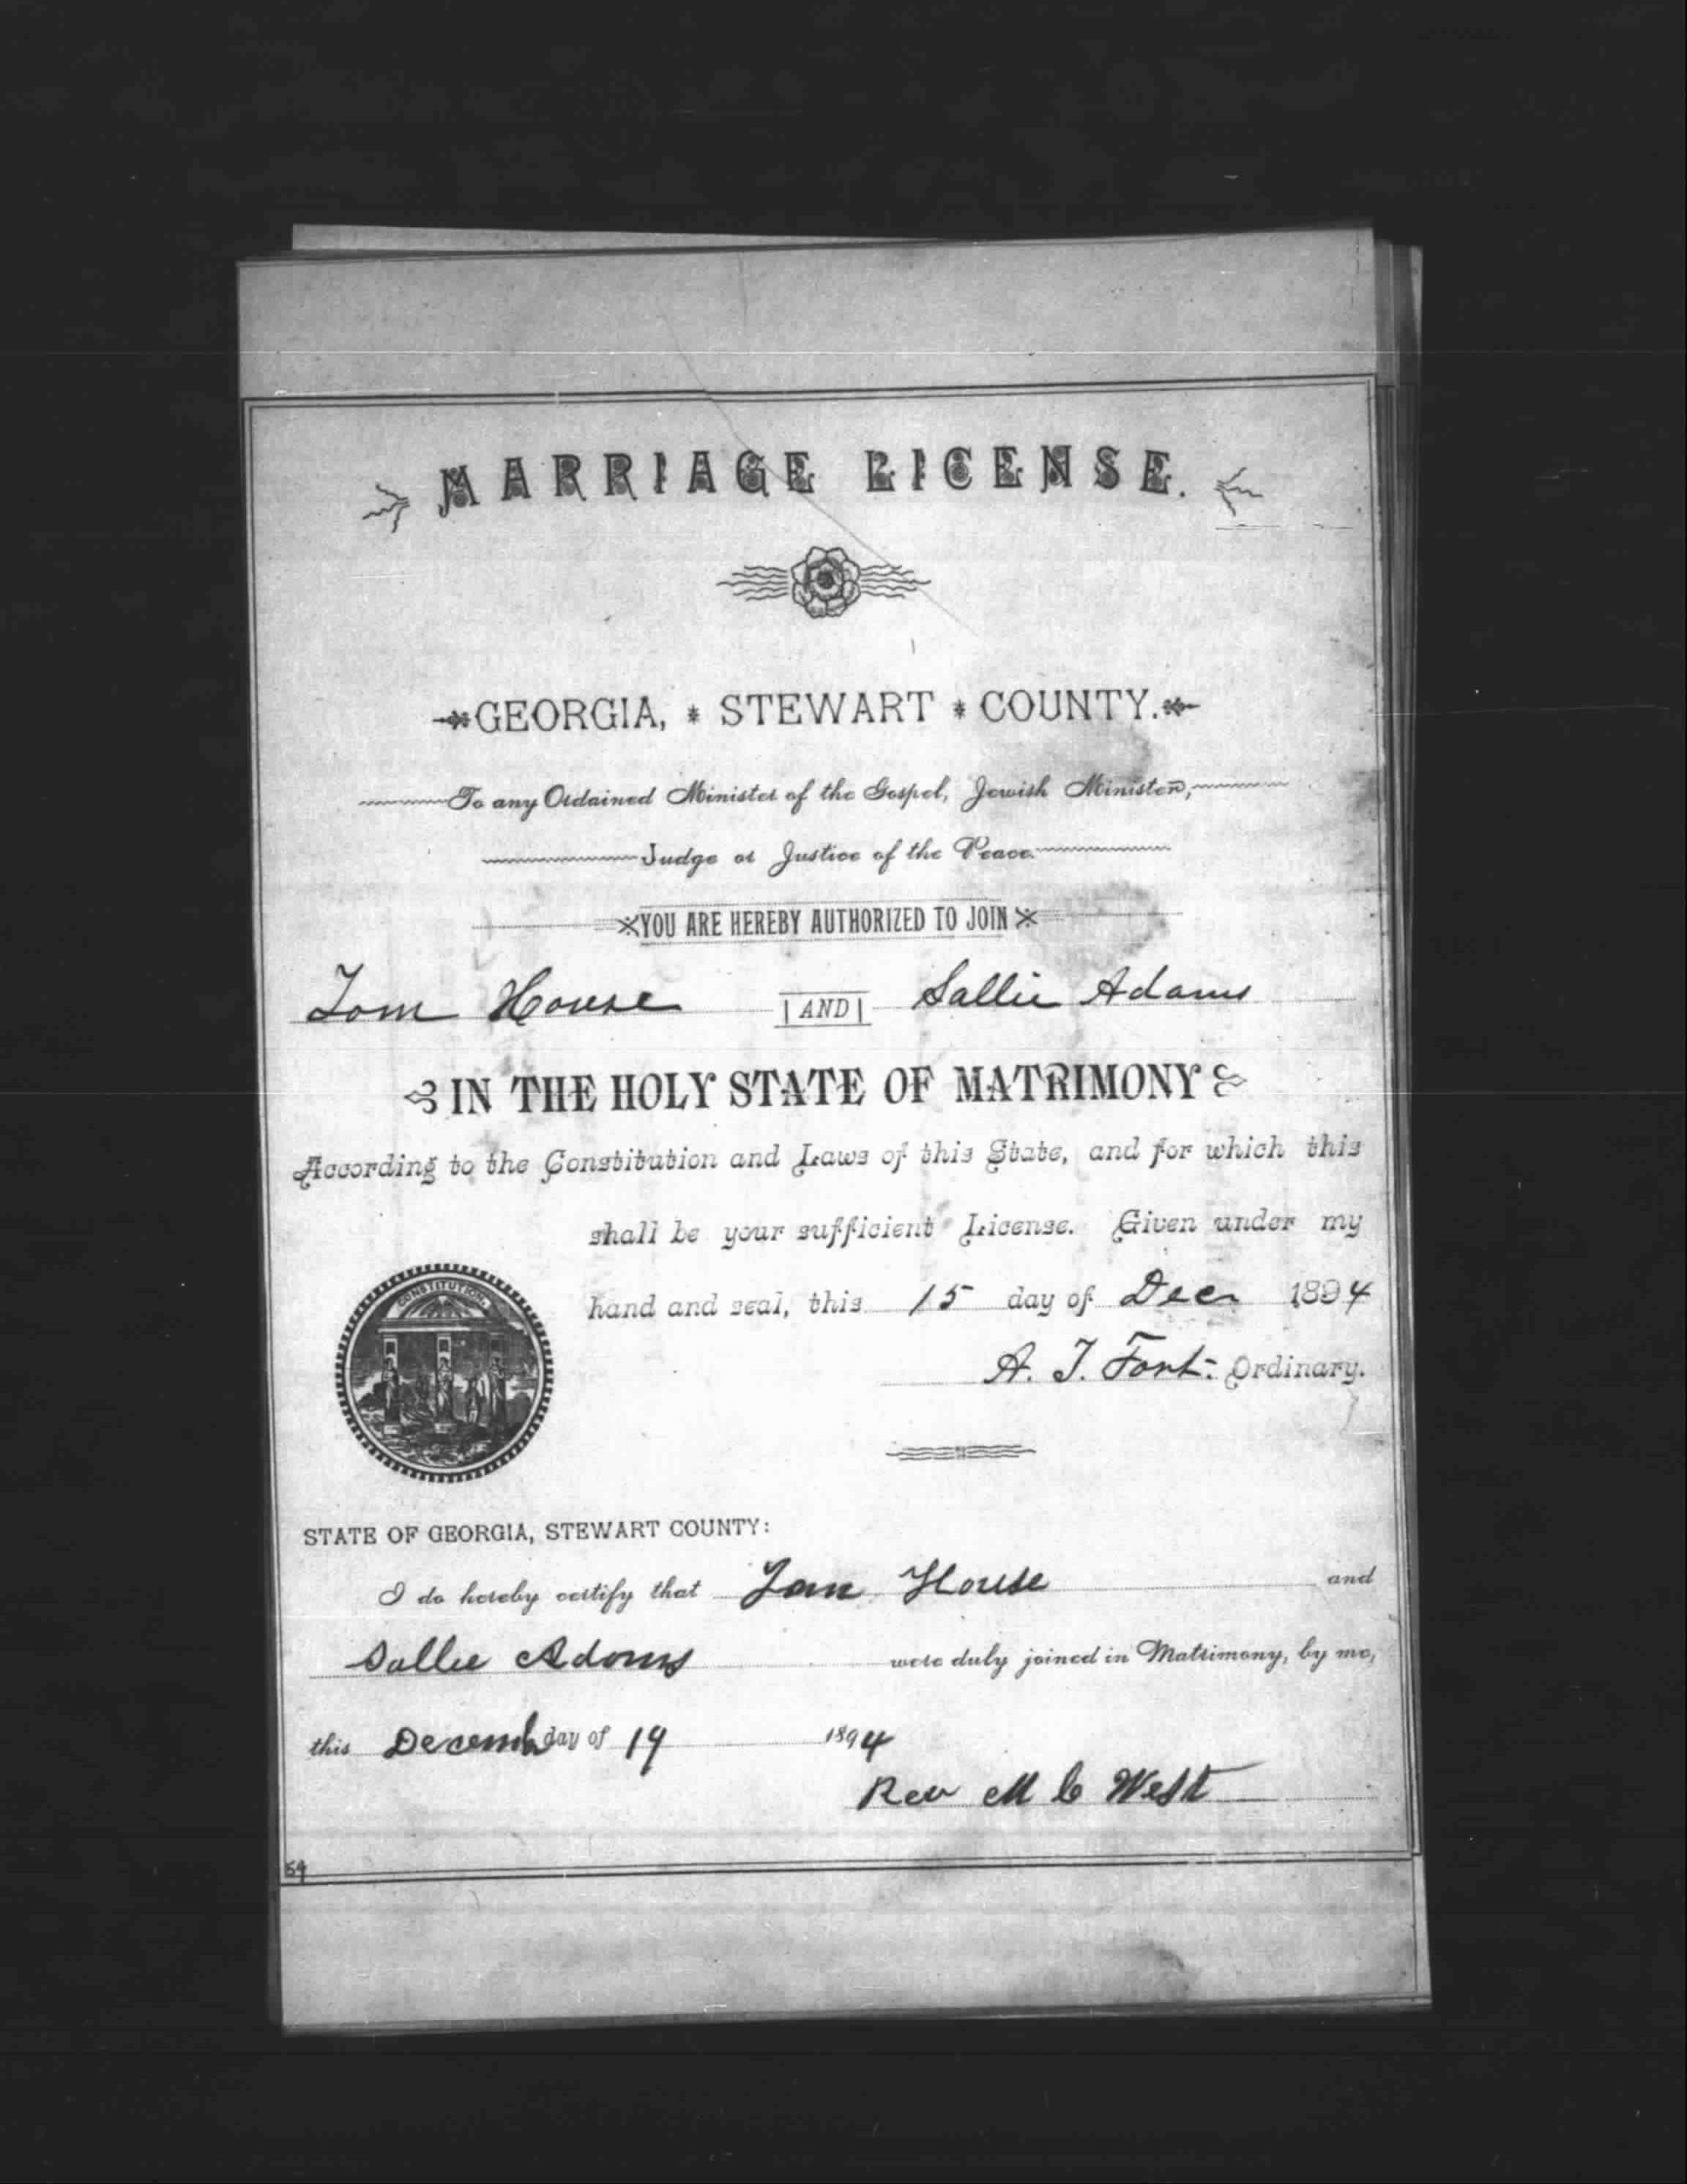 MARRIAGE LICENSE.
GEORGIA, * STEWART * COUNTY.
To any Ordained Minister of the Gospel, Jewish Minister,
Judge or Justice of the Peace.
YOU ARE HEREBY AUTHORIZED TO JOIN
Tom House AND Sallie Adams
IN THE HOLY STATE OF MATRIMONY
According to the Constitution and Laws of this State, and for which this
shall be your sufficient License. Given under my
hand and seal, this 15 day of Dec 1894
CONSTITUTION.
A. T. Fort. Ordinary.
STATE OF GEORGIA, STEWART COUNTY:
I do hereby certify that Tom House and
Sallie Adams were duly joined in Matrimony, by me,
this Decemb day of 19 1894
Rev M C West
59